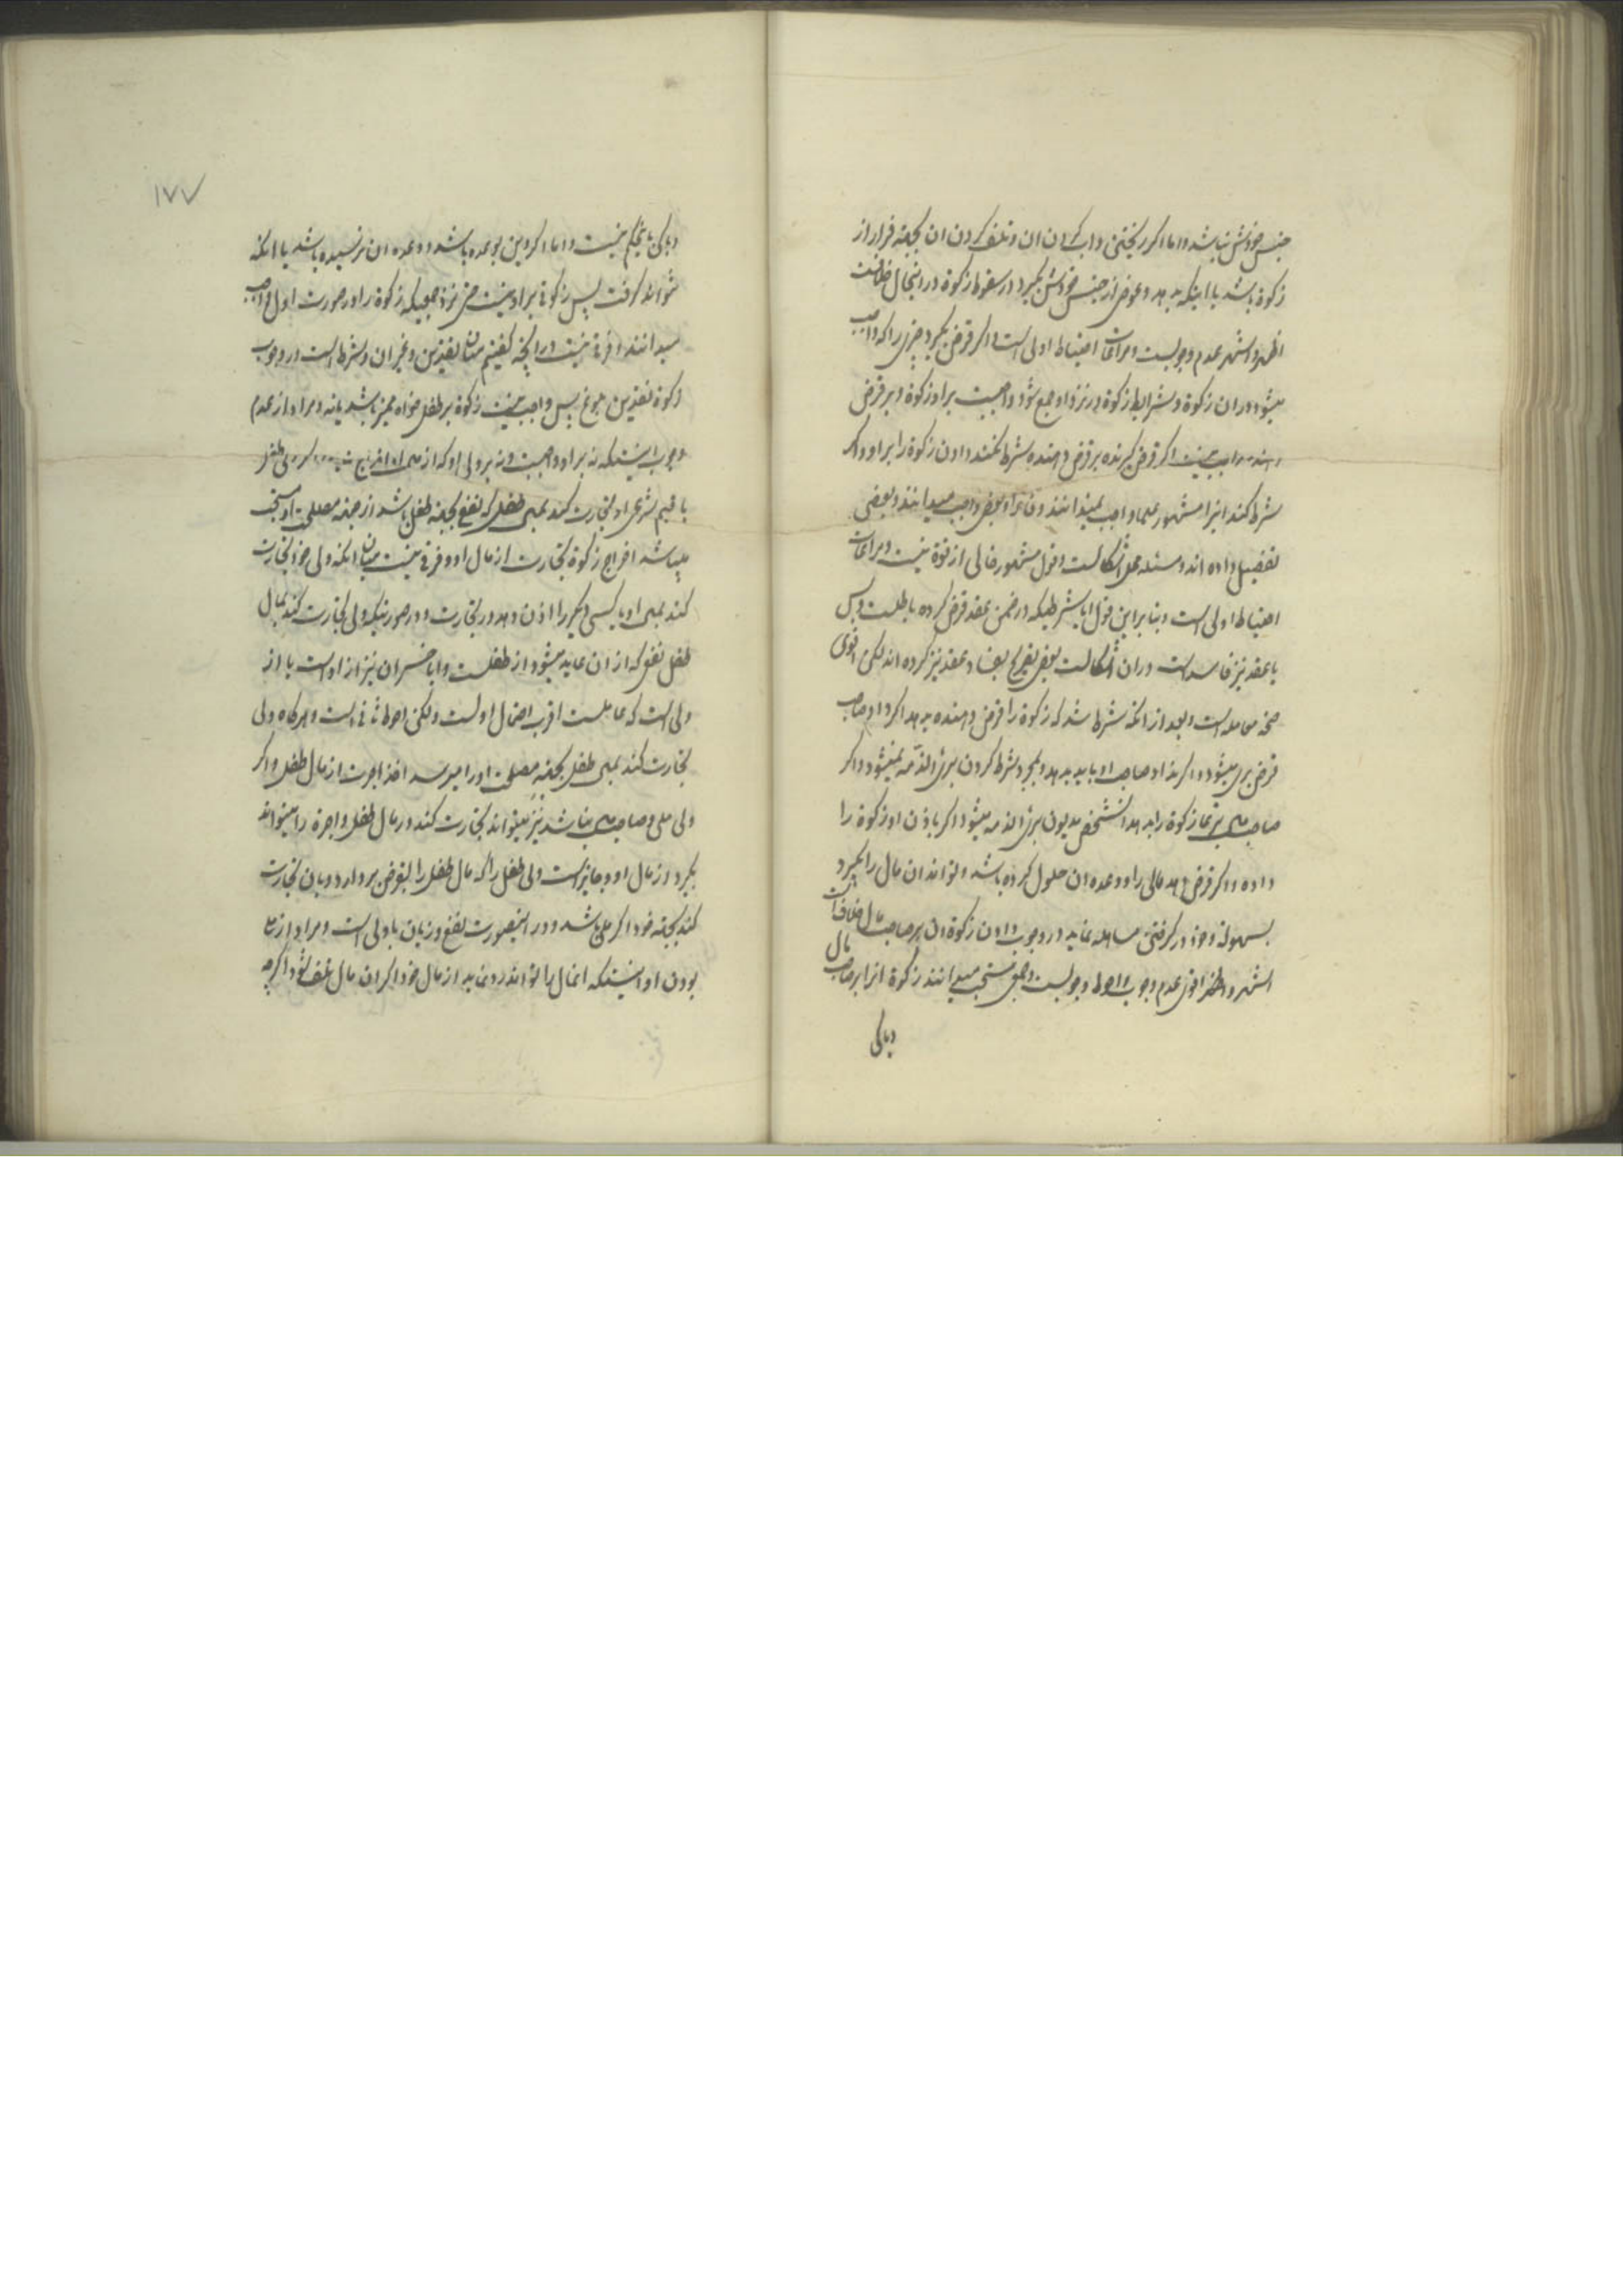 جنس خودش نباشد و اما اگر ریختن و آب کردن آن و تلف کردن آن بجهة فرار از
زکوة باشد یا اینکه بدهد و عوض از جنس خودش بگیرد در سقوط زکوة در اینحال خلافست
اظهر و اشهر عدم وجوبست و مراعات احتیاط اولی است و اگر قرض بگیرد چیزی را که واجب
میشود در آن زکوة و شرایط زکوة در نزد او جمع شود واجبست بر او زکوة و بر قرض
دهنده واجب نیست اگر قرض گیرنده بر قرض دهنده شرط نکند دادن زکوة را بر او و اگر
شرط کند انرا مشهور علما واجب نمیدانند وفا بر او بعضی واجب میدانند و بعضی
تفصیل داده اند و مسئله محل اشکالست و قول مشهور خالی از قوة نیست و مراعات
احتیاط اولی است و بنابر این قول ایا شرطیکه در ضمن عقد قرض کرده باطلست و بس
یا عقد نیز فاسد است در ان اشکالست بعضی تصریح بفساد عقد نیز کرده اند لکن اقوی
صحة معامله است و بعد از انکه شرط شد که زکوة را قرض دهنده بدهد اگر داد صاحب
قرض بری میشود و اگر نداد صاحب او باید بدهد و بمجرد شرط کردن بری الذمه نمیشود و اگر
صاحب مال تبرعا زکوة را بدهد انشخص مدیون بری الذمه میشود اگر باذن او زکوة را
داده و اگر قرض دهد مالی را و وعده ان حلول کرده باشد و تواند ان مال را بگیرد
بسهولة و خود در گرفتن مساهله نماید در وجوب دادن زکوة ان بر صاحب مال خلاف است
اشهر و اظهر اقوی عدم وجوب و احوط وجوبست و بعضی مستحب میدانند زکوة انرا بر صاحب مال
و باکی
۱۷۷
و باکی باینحکم نیست و اما اگر دین بوعده باشد و وعده ان نرسیده باشد یا انکه
نتواند گرفت پس زکوتی بر او نیست حتی نزد جمعیکه زکوة را در صورت اول واجب
میدانند و فرقی نیست در انچه گفتیم میان نقدین و غیر ان و شرط است در وجوب
زکوة نقدین بلوغ پس واجب نیست زکوة بر طفل خواه ممیز باشد یا نه و مراد از عدم
وجوب اینستکه نه بر او واجبست و نه بر ولی او که از مال او اخراج کند ولی طفل
یا قیم شرعی او تجارت کند بمال طفل که نفع بجهة طفل باشد از جهة مصلحت او مستحب
میباشد اخراج زکوة تجارت از مال او و فرقی نیست میان انکه ولی خود تجارت
کند بمال او یا کسی دیگر را اذن دهد در تجارت و در صورتیکه ولی تجارت کند بمال
طفل نفعی که از ان عاید میشود از طفلست و ایا خسران نیز از اوست یا از
ولی است که عاملست اقرب احتمال اولست و لکن احوط ثانی است و هرگاه ولی
تجارت کند بمال طفل بجهة مصلحت او را میرسد اخذ اجرت از مال طفل و اگر
ولی ملی و صاحب مال نباشد نیز میتواند تجارت کند در مال طفل و اجرة را میتواند
بگیرد از مال او و جایز است ولی طفل را که مال طفل را بقرض بردارد و بان تجارت
کند بجهة خود اگر ملی باشد و در اینصورت نفع و زیان با ولی است و مراد از ملی
بودن او اینستکه انمال را تواند رد نماید از مال خود اگر ان مال تلف شود اگرچه